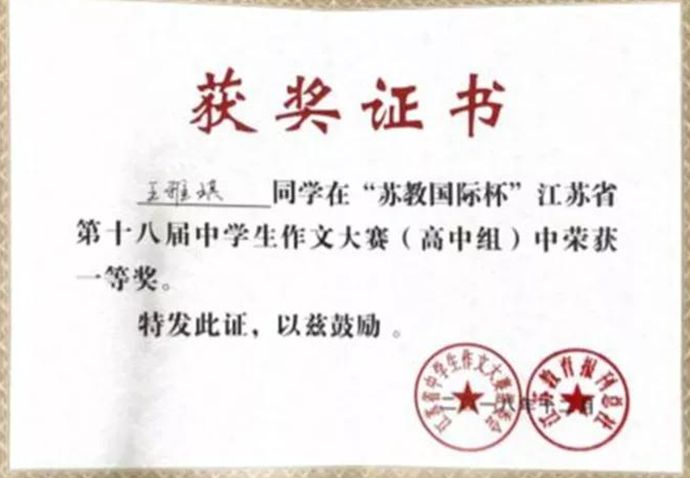 获奖证书
王雅琪 同学在“苏教国际杯”江苏省
第十八届中学生作文大赛（高中组）中荣获
一等奖。
特发此证，以兹鼓励。
江苏省中学生作文大赛组委会
江苏教育报刊总社
二〇一八年十二月